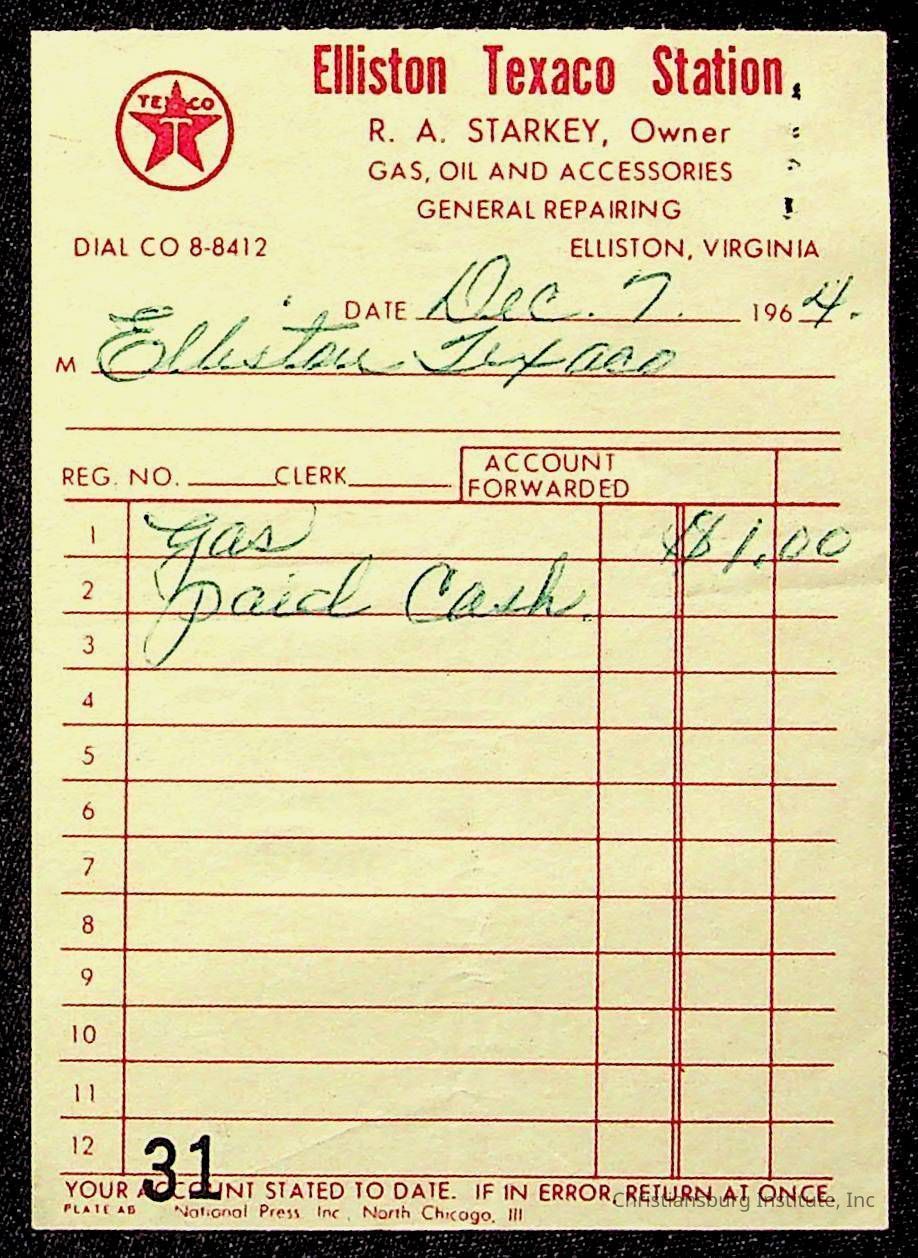 Elliston Texaco Station
TEXACO
T
R. A. STARKEY, Owner
GAS, OIL AND ACCESSORIES
GENERAL REPAIRING
DIAL CO 8-8412
ELLISTON, VIRGINIA
DATE Dec. 7. 1964.
M Elliston Texaco
REG. NO. CLERK ACCOUNT FORWARDED
1 Gas $1.00
2 paid Cash.
3
4
5
6
7
8
9
10
11
12
31
YOUR ACCOUNT STATED TO DATE. IF IN ERROR, RETURN AT ONCE
Christiansburg Institute, Inc
PLATE AB National Press Inc, North Chicago, Ill